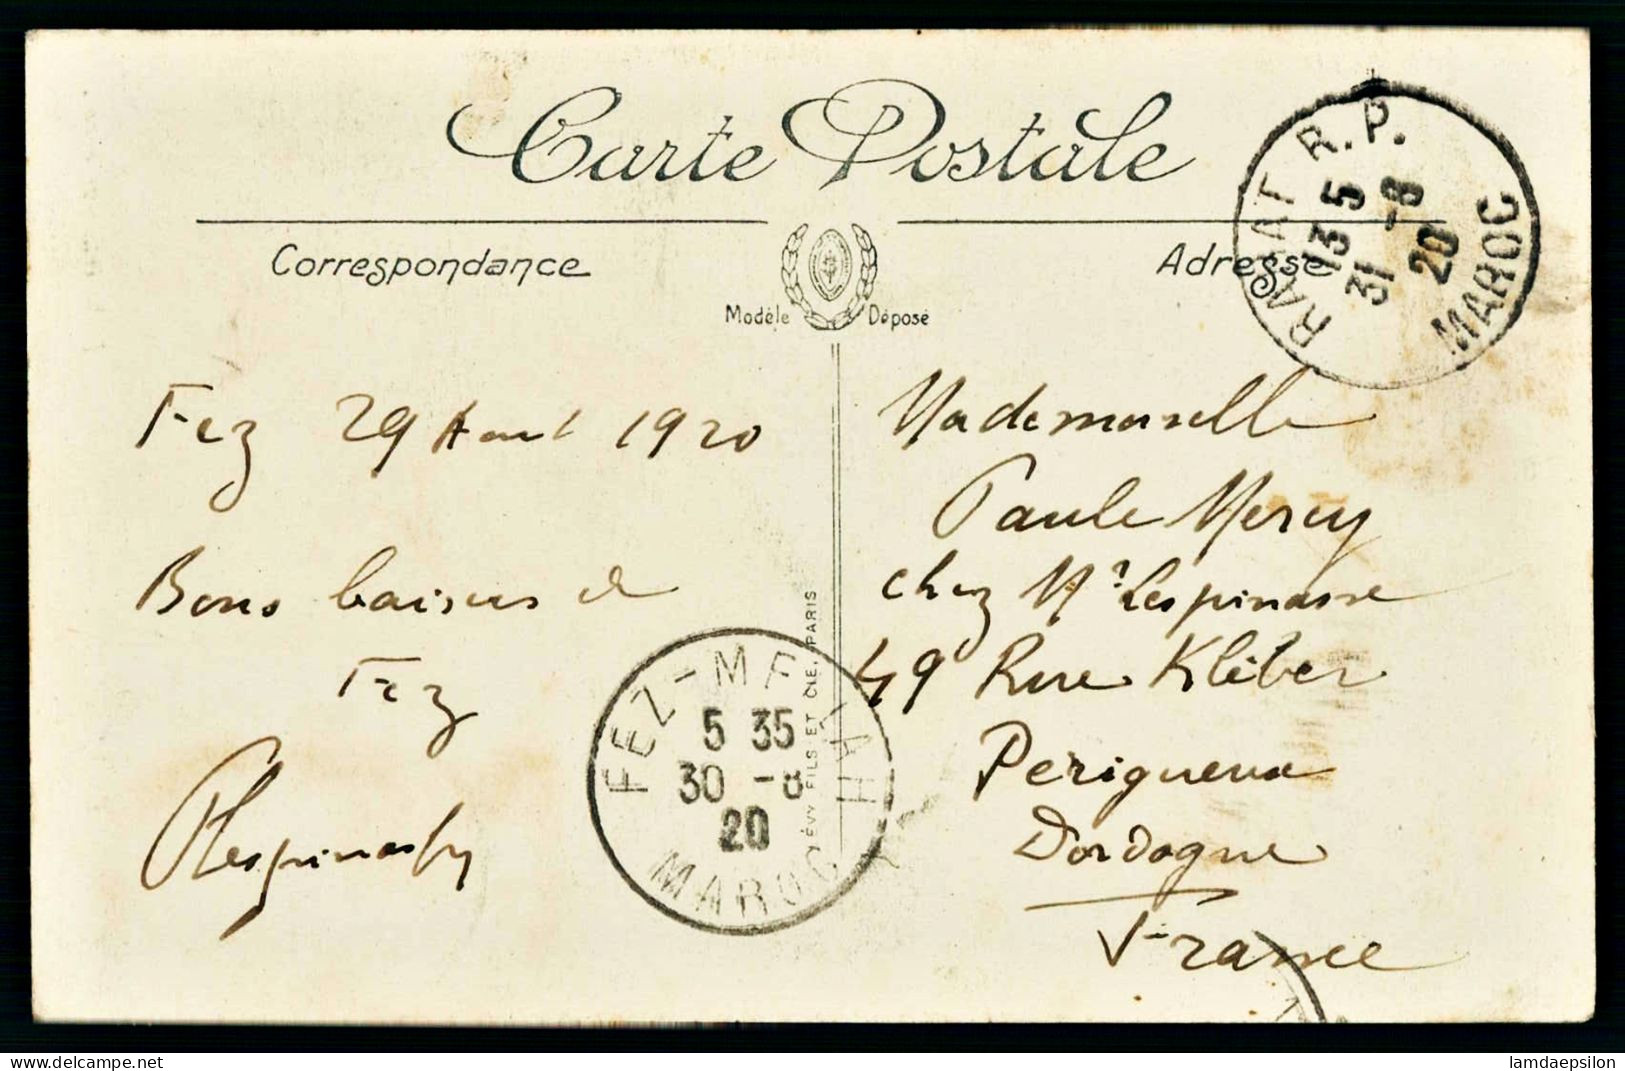 Carte Postale
Correspondance
Adresse
Modèle Déposé
RABAT R.P.
13 5
31 -8
20
MAROC
Fez 29 Aout 1920
Bons baisers de
Fez
Mademoiselle
Paule Mercy
chez Mr Lespinasse
49 Rue Kléber
Perigueux
Dordogne
France
FEZ-M
5 35
30 -8
20
MAROC
LÉVY FILS ET CIE, PARIS
delcampe.net
lamdaepsilon